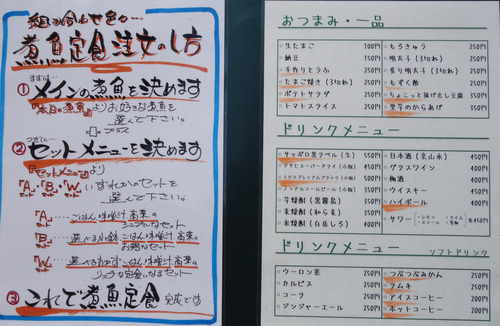 組み合わせ自由
煮魚定食注文のし方
まずは…
① メインの煮魚を決めます
『本日の煮魚』よりお好きな煮魚を
選んで下さい。
プラス
つぎに…
② セットメニューを決めます
『セットメニュー』より
『A』・『B』・『W』いずれかのセットを
選んで下さい。
『A』セット……ごはん・味噌汁・高菜の
シンプルなセット
『B』セット……選べる小鉢・ごはん・味噌汁・高菜の
お得なセット
『W』セット……選べるおかず・ごはん・味噌汁・高菜の
リッチな定食になるセット
③ これで煮魚定食 完成です
おつまみ・一品
生たまご 100円
納豆
手作りとうふ 200円
たまご焼き(3切れ) 200円
ポテトサラダ 250円
トマトスライス 250円
もろきゅう 250円
明太子(3切れ) 250円
炙り明太子(3切れ) 250円
もずく酢 250円
ちょこっと揚げ出し豆腐 250円
里芋のからあげ 350円
ドリンクメニュー
サッポロ黒ラベル(生) 550円
アサヒスーパードライ(小瓶) 450円
エビスプレミアムブラック(小瓶) 500円
ノンアルコールビール(小瓶) 350円
芋焼酎(黒霧島) 350円
麦焼酎(和ら麦) 350円
米焼酎(白岳しろ) 400円
日本酒(玄山水) 450円
グラスワイン 400円
梅酒 400円
ウイスキー 450円
ハイボール 400円
サワー(・レモン ・ライム ・スコール ・巨峰) 450円
ドリンクメニュー ソフトドリンク
ウーロン茶 250円
カルピス 250円
コーラ 250円
ジンジャーエール 250円
つぶつぶみかん 250円
ラムネ 250円
アイスコーヒー 200円
ホットコーヒー 200円